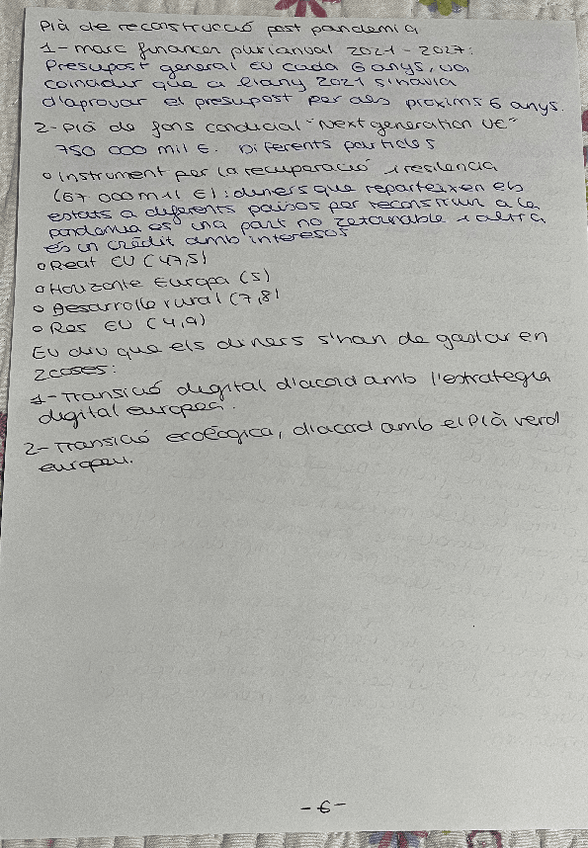 Plà de reconstrucció post pandemia
1- marc financer plurianual 2021 - 2027:
Presupost general EU cada 6 anys, va
coincidir que a l'any 2021 s'havia
d'aprovar el presupost per als pròxims 6 anys.
2- Plà de fons condicial "Next generation UE"
750 000 mil €. Diferents partides
o Instrument per la recuperació i resilencia
(67 000 mil €): diners que reparteixen els
estats a diferents països per reconstruir a la
pandemia és una part no retornable i altra
és un crèdit amb interesos
o Reat EU (47,5)
o Houzonte Europa (5)
o Desarrollo rural (7,8)
o Res EU (4,9)
EU diu que els diners s'han de gastar en
2 coses:
1- Transició digital d'acord amb l'estrategia
digital europea.
2- Transició ecològica, d'acod amb el Plà verd
europeu.
-6-